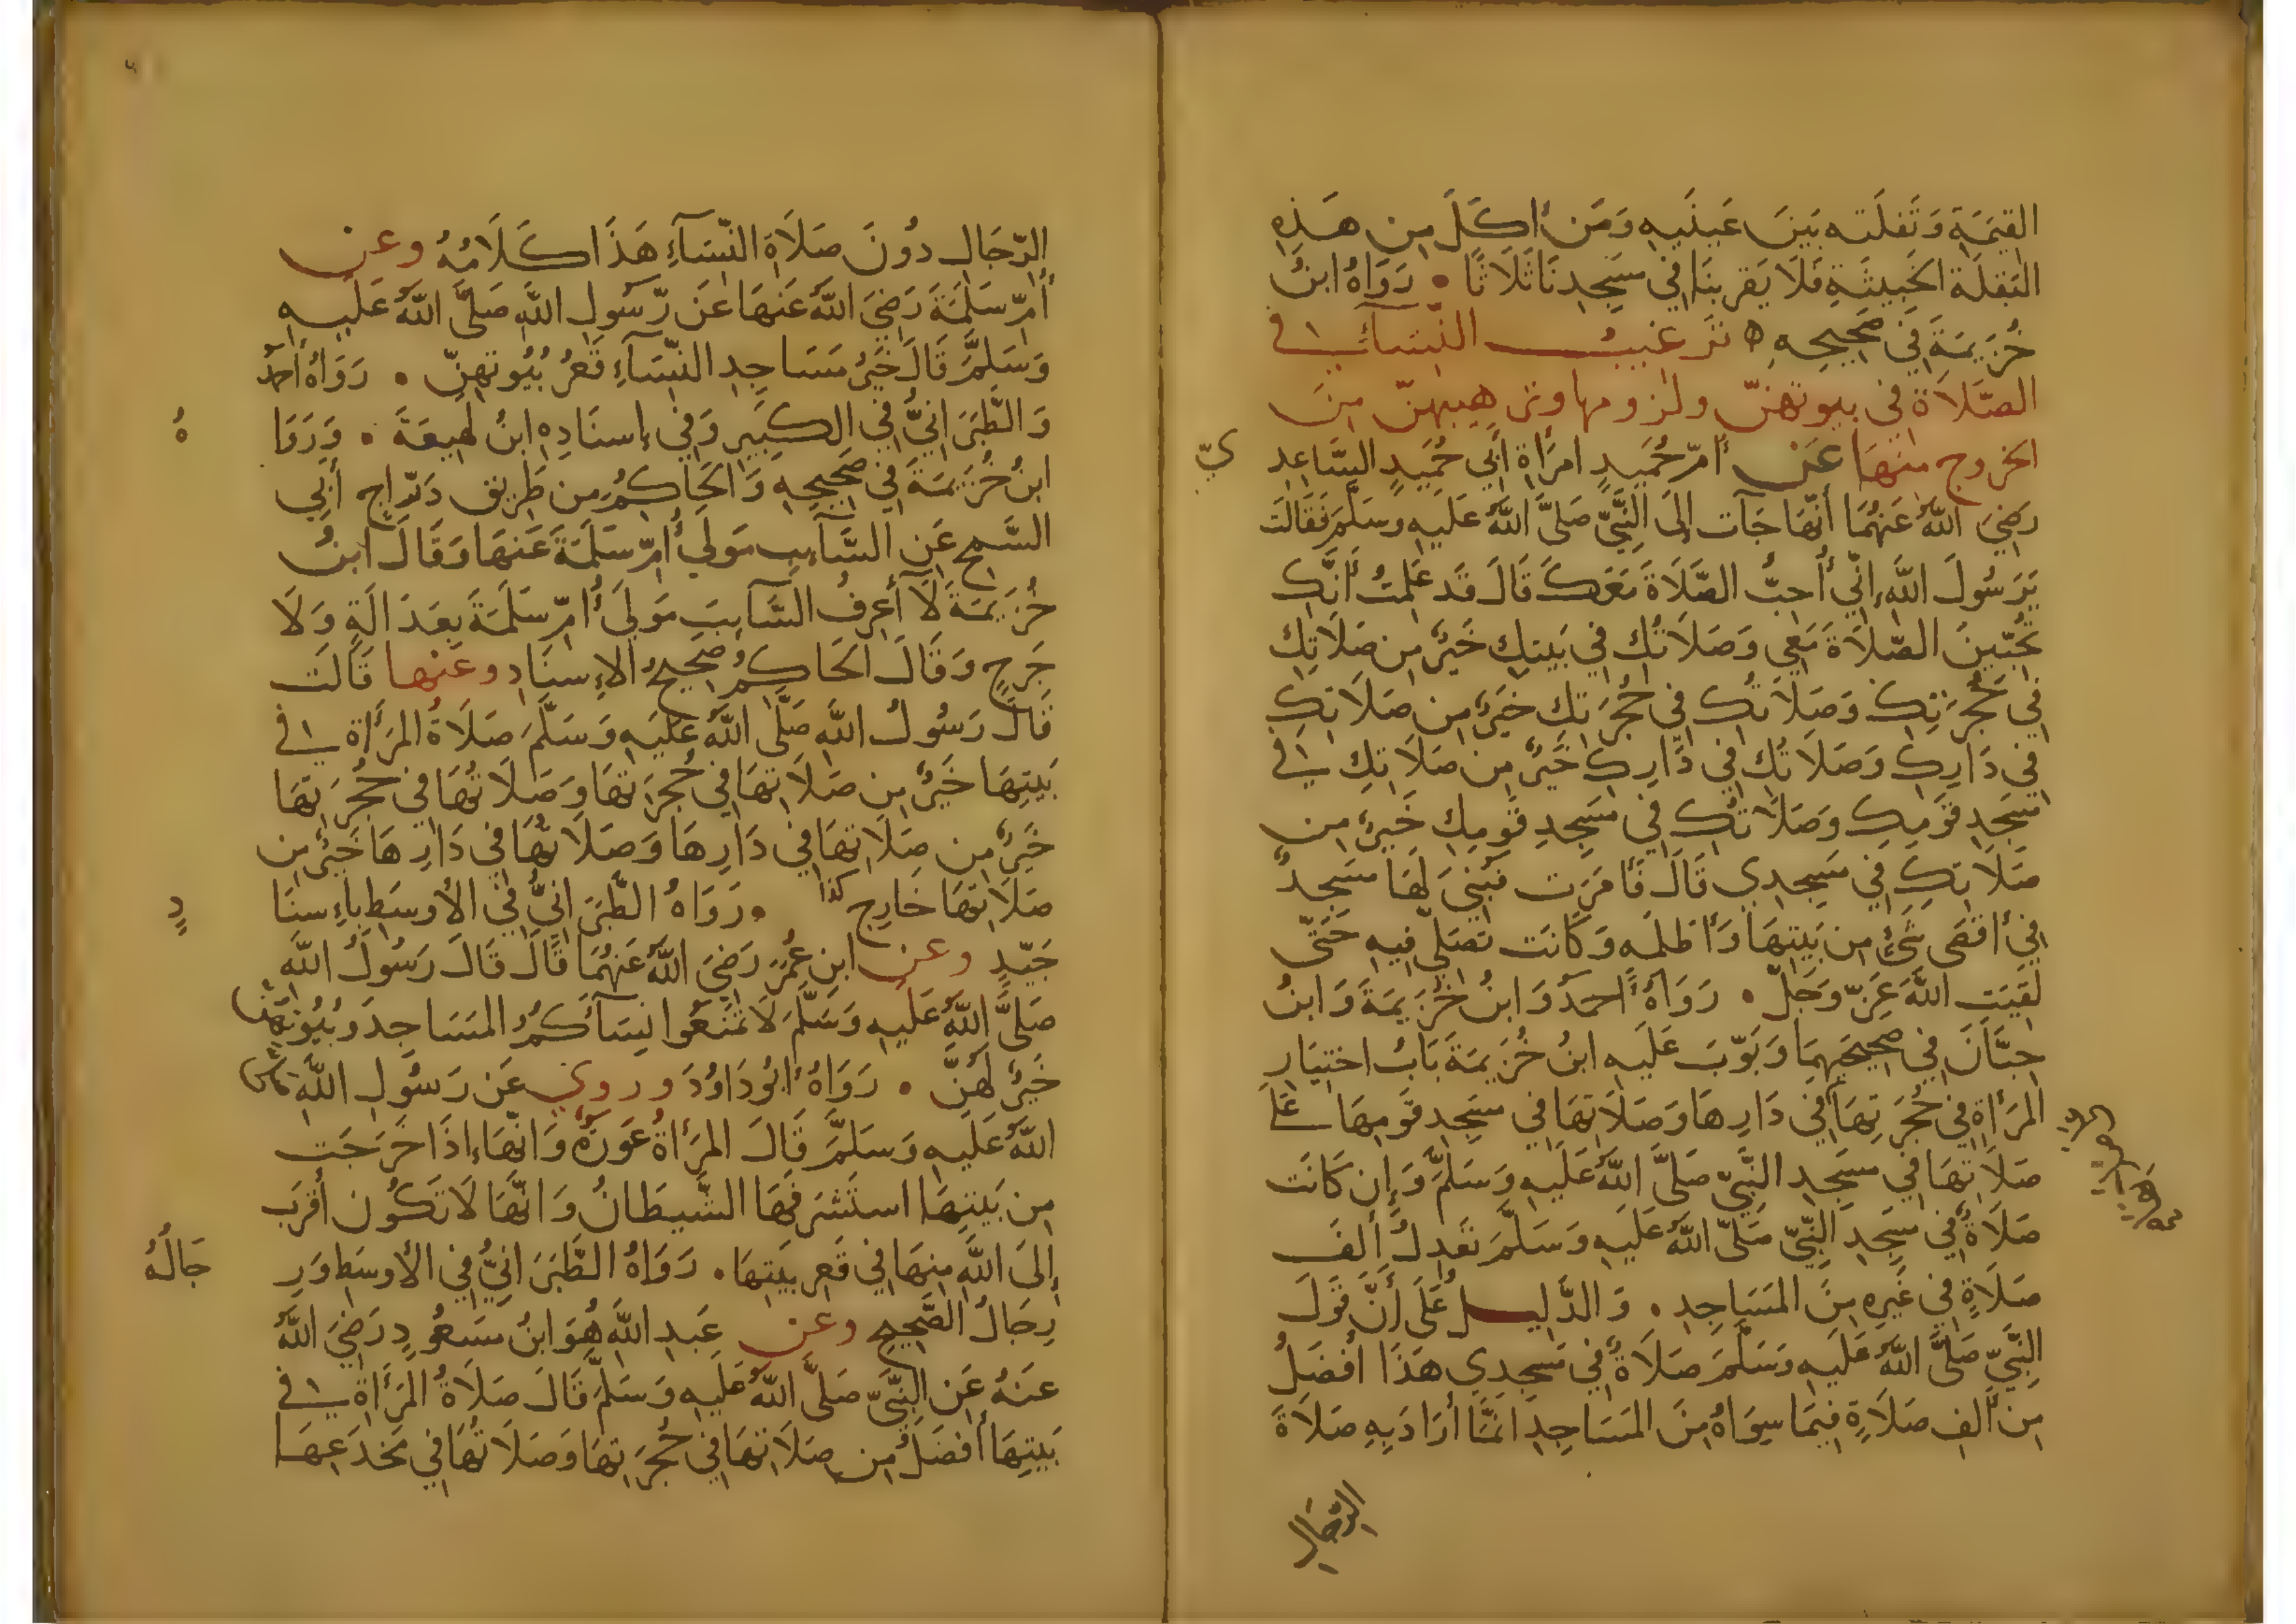 القِيَمَةِ وَتَفلَته بَينَ عَينَيهِ وَمَن أَكَلَ مِن هَذِهِ
البَقلَة الخَبِيثَةِ فَلَا يَقرَبنَا فِي مَسجِدِنَا ثَلَاثًا . رَوَاهُ ابنُ
خُزَيمَةَ فِي صَحِيحِهِ ه تَرغيبُ النِّسَآءِ في
الصَّلَاة في بيوتهنّ ولزومها وترهيبهنّ مِنَ
الخروج منهَا عَن أُمّ حُمَيدٍ امرَأَةِ أَبِي حُمَيدٍ السَّاعِدِ
يّ
رَضِيَ اللهُ عَنهُمَا أَنّهَا جَآت إِلَى النَّبِيّ صَلَّى اللهُ عَلَيهِ وسَلَّمَ فَقَالَت
يَرَسُولَ اللهِ إِنّي أُحِبُّ الصَّلَاةَ مَعَكَ قَالَ قَد عَلِمتُ أَنَّكِ
تُحِبّينَ الصَّلَاةَ مَعِي وَصَلَاتُكِ فِي بَيتِكِ خَيرٌ مِن صَلَاتِكِ
فِي حُجرَتِكِ وَصَلَاتُكِ فِي حُجرَتِكِ خَيرٌ مِن صَلَاتِكِ
فِي دَارِكِ وَصَلَاتُكِ فِي دَارِكِ خَيرٌ مِن صَلَاتِكِ في
مَسجِدِ قَومِكِ وَصَلَاتُكِ فِي مَسجِدِ قَومِكِ خَيرٌ مِن
صَلَاتِكِ فِي مَسجِدِي قَالَ فَأَمَرَت فَبُنِيَ لَهَا مَسجِدٌ
فِي أَقصَى شَيءٍ مِن بَيتِهَا وَأَظلَمِه وَكَانَت تُصَلّي فِيهِ حَتَّى
لَقِيَتِ اللهَ عَزّ وَجَلّ . رَوَاهُ أَحمَدُ وَابنُ خُزَيمَةَ وَابنُ
حِبَّانَ فِي صَحِيحَيهِمَا وَبَوّبَ عَلَيهِ ابنُ خُزَيمَةَ بَابُ اختِيَارِ
المَرأَةِ فِي حُجرَتِهَا فِي دَارِهَا وَصَلَاتِهَا فِي مَسجِدِ قَومِهَا عَلَى
صَلَاتِهَا فِي مَسجِدِ النَّبِيّ صَلَّى اللهُ عَلَيهِ وَسَلَّمَ وَإِن كَانَت
صَلَاةٌ فِي مَسجِدِ النَّبِيّ صَلَّى اللهُ عَلَيهِ وَسَلَّمَ تَعدِلُ أَلفَ
صَلَاةٍ فِي غَيرِهِ مِنَ المَسَاجِدِ . وَالدَّلِيلُ عَلَى أَنَّ قَولَ
النَّبِيّ صَلَّى اللهُ عَلَيهِ وَسَلَّمَ صَلَاةٌ فِي مَسجِدِي هَذَا أَفضَلُ
مِن أَلفِ صَلَاةٍ فِيمَا سِوَاهُ مِنَ المَسَاجِدِ انَّمَا أَرَادَ بِهِ صَلَاةَ
الرِّجَالِ
الرِّجَالِ دُونَ صَلَاةِ النِّسَآءِ هَذَا كَلَامُهُ وعن
أُمّ سَلَمَةَ رَضِيَ اللهُ عَنهَا عَن رَّسُولِ اللهِ صَلَّى اللهُ عَلَيهِ
وَسَلَّمَ قَالَ خَيرُ مَسَاجِدِ النِّسَآءِ قَعرُ بُيُوتِهِنّ . رَوَاهُ أحمدُ
وَالطَّبَرَانِيُّ فِي الكَبِيرِ وَفِي إِسنَادِهِ ابنُ لَهِيعَةَ . وَرَوَا
هُ
ابنُ خُزَيمَةَ فِي صَحِيحِهِ وَالحَاكِمُ مِن طَرِيقِ دَرّاجٍ أَبِي
السَّمحِ عَنِ السَّآئِبِ مَولَى أُمّ سَلَمَةَ عَنهَا وَقَالَ ابنُ
خُزَيمَةَ لَآ أَعرِفُ السَّآيِبَ مَولَى أُمّ سَلَمَةَ بِعَدَالَةٍ وَلَا
جَرحٍ وَقَالَ الحَاكِمُ صَحِيحُ الإِسنَادِ وعَنها قَالَت
قَالَ رَسُولُ اللهِ صَلَّى اللهُ عَلَيهِ وَسَلَّمَ صَلَاةُ المَرأَةِ في
بَيتِهَا خَيرٌ مِن صَلَاتِهَا فِي حُجرَتِهَا وَصَلَاتُهَا فِي حُجرَتِهَا
خَيرٌ مِن صَلَاتِهَا فِي دَارِهَا وَصَلَاتُهَا فِي دَارِهَا خَيرٌ مِن
صَلَاتِهَا خَارِجَ كذا . وَرَوَاهُ الطَّبَرَانِيُّ فِي الأَوسَطِ بِإِسنَا
دٍ
جَيّدٍ وعن ابنِ عُمَرَ رَضِيَ اللهُ عَنهُمَا قَالَ قَالَ رَسُولُ اللهِ
صَلَّى اللهُ عَلَيهِ وَسَلَّمَ لَا تَمنَعُوا نِسَآءَكُمُ المَسَاجِدَ وَبُيُوتُهُنّ
خَيرٌ لَهُنَّ . رَوَاهُ أَبُو دَاوُدَ وروي عَن رَسُولِ اللهِ صَلَّى
اللهُ عَلَيهِ وَسَلَّمَ قَالَ المَرأَةُ عَورَةٌ وَانّهَا إِذَا خَرَجَت
مِن بَيتِهَا استَشرَفَهَا الشَّيطَانُ وَانّهَا لَا تَكُون أَقرَبَ
إِلَى اللهِ مِنهَا فِي قَعرِ بَيتِهَا . رَوَاهُ الطَّبَرَانِيُّ فِي الأَوسَطِ وَرِ
جَالُهُ
رِجَالُ الصَّحِيحِ وعن عَبدِ اللهِ هُوَ ابنُ مَسعُودٍ رَضِيَ اللهُ
عَنهُ عَنِ النَّبِيّ صَلَّى اللهُ عَلَيهِ وَسَلَّمَ قَالَ صَلَاةُ المَرأَةِ في
بَيتِهَا أَفضَلُ مِن صَلَاتِهَا فِي حُجرَتِهَا وَصَلَاتُهَا فِي مَخدَعِهَا